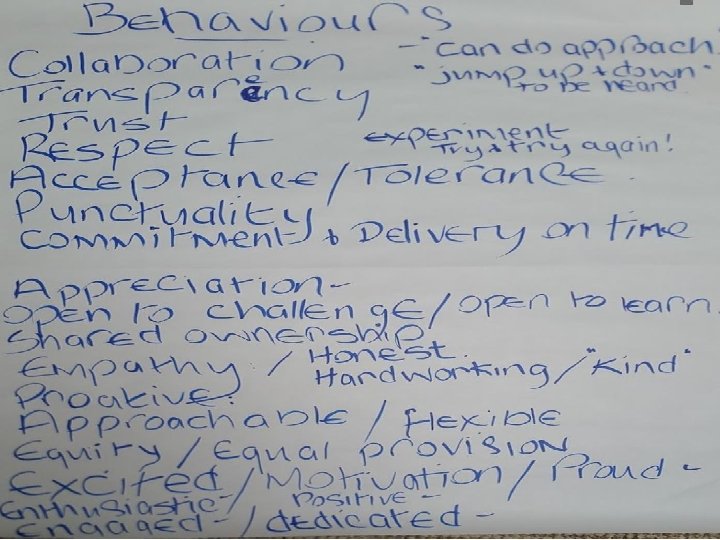 Behaviours
Collaboration
- "Can do approach"
Transparency
"jump up + down"
to be heard
Trust
Respect
experiment
Try & try again!
Acceptance/Tolerance.
Punctuality
Commitment + Delivery on time
Appreciation-
open to challenge/open to learn.
Shared ownership
Empathy / Honest.
Handworking/"Kind"
Proative.
Approachable / flexible
Equity/Equal provision
Excited/Motivation/Proud -
Enthusiastic-/ Positive -
Engaged-/dedicated -